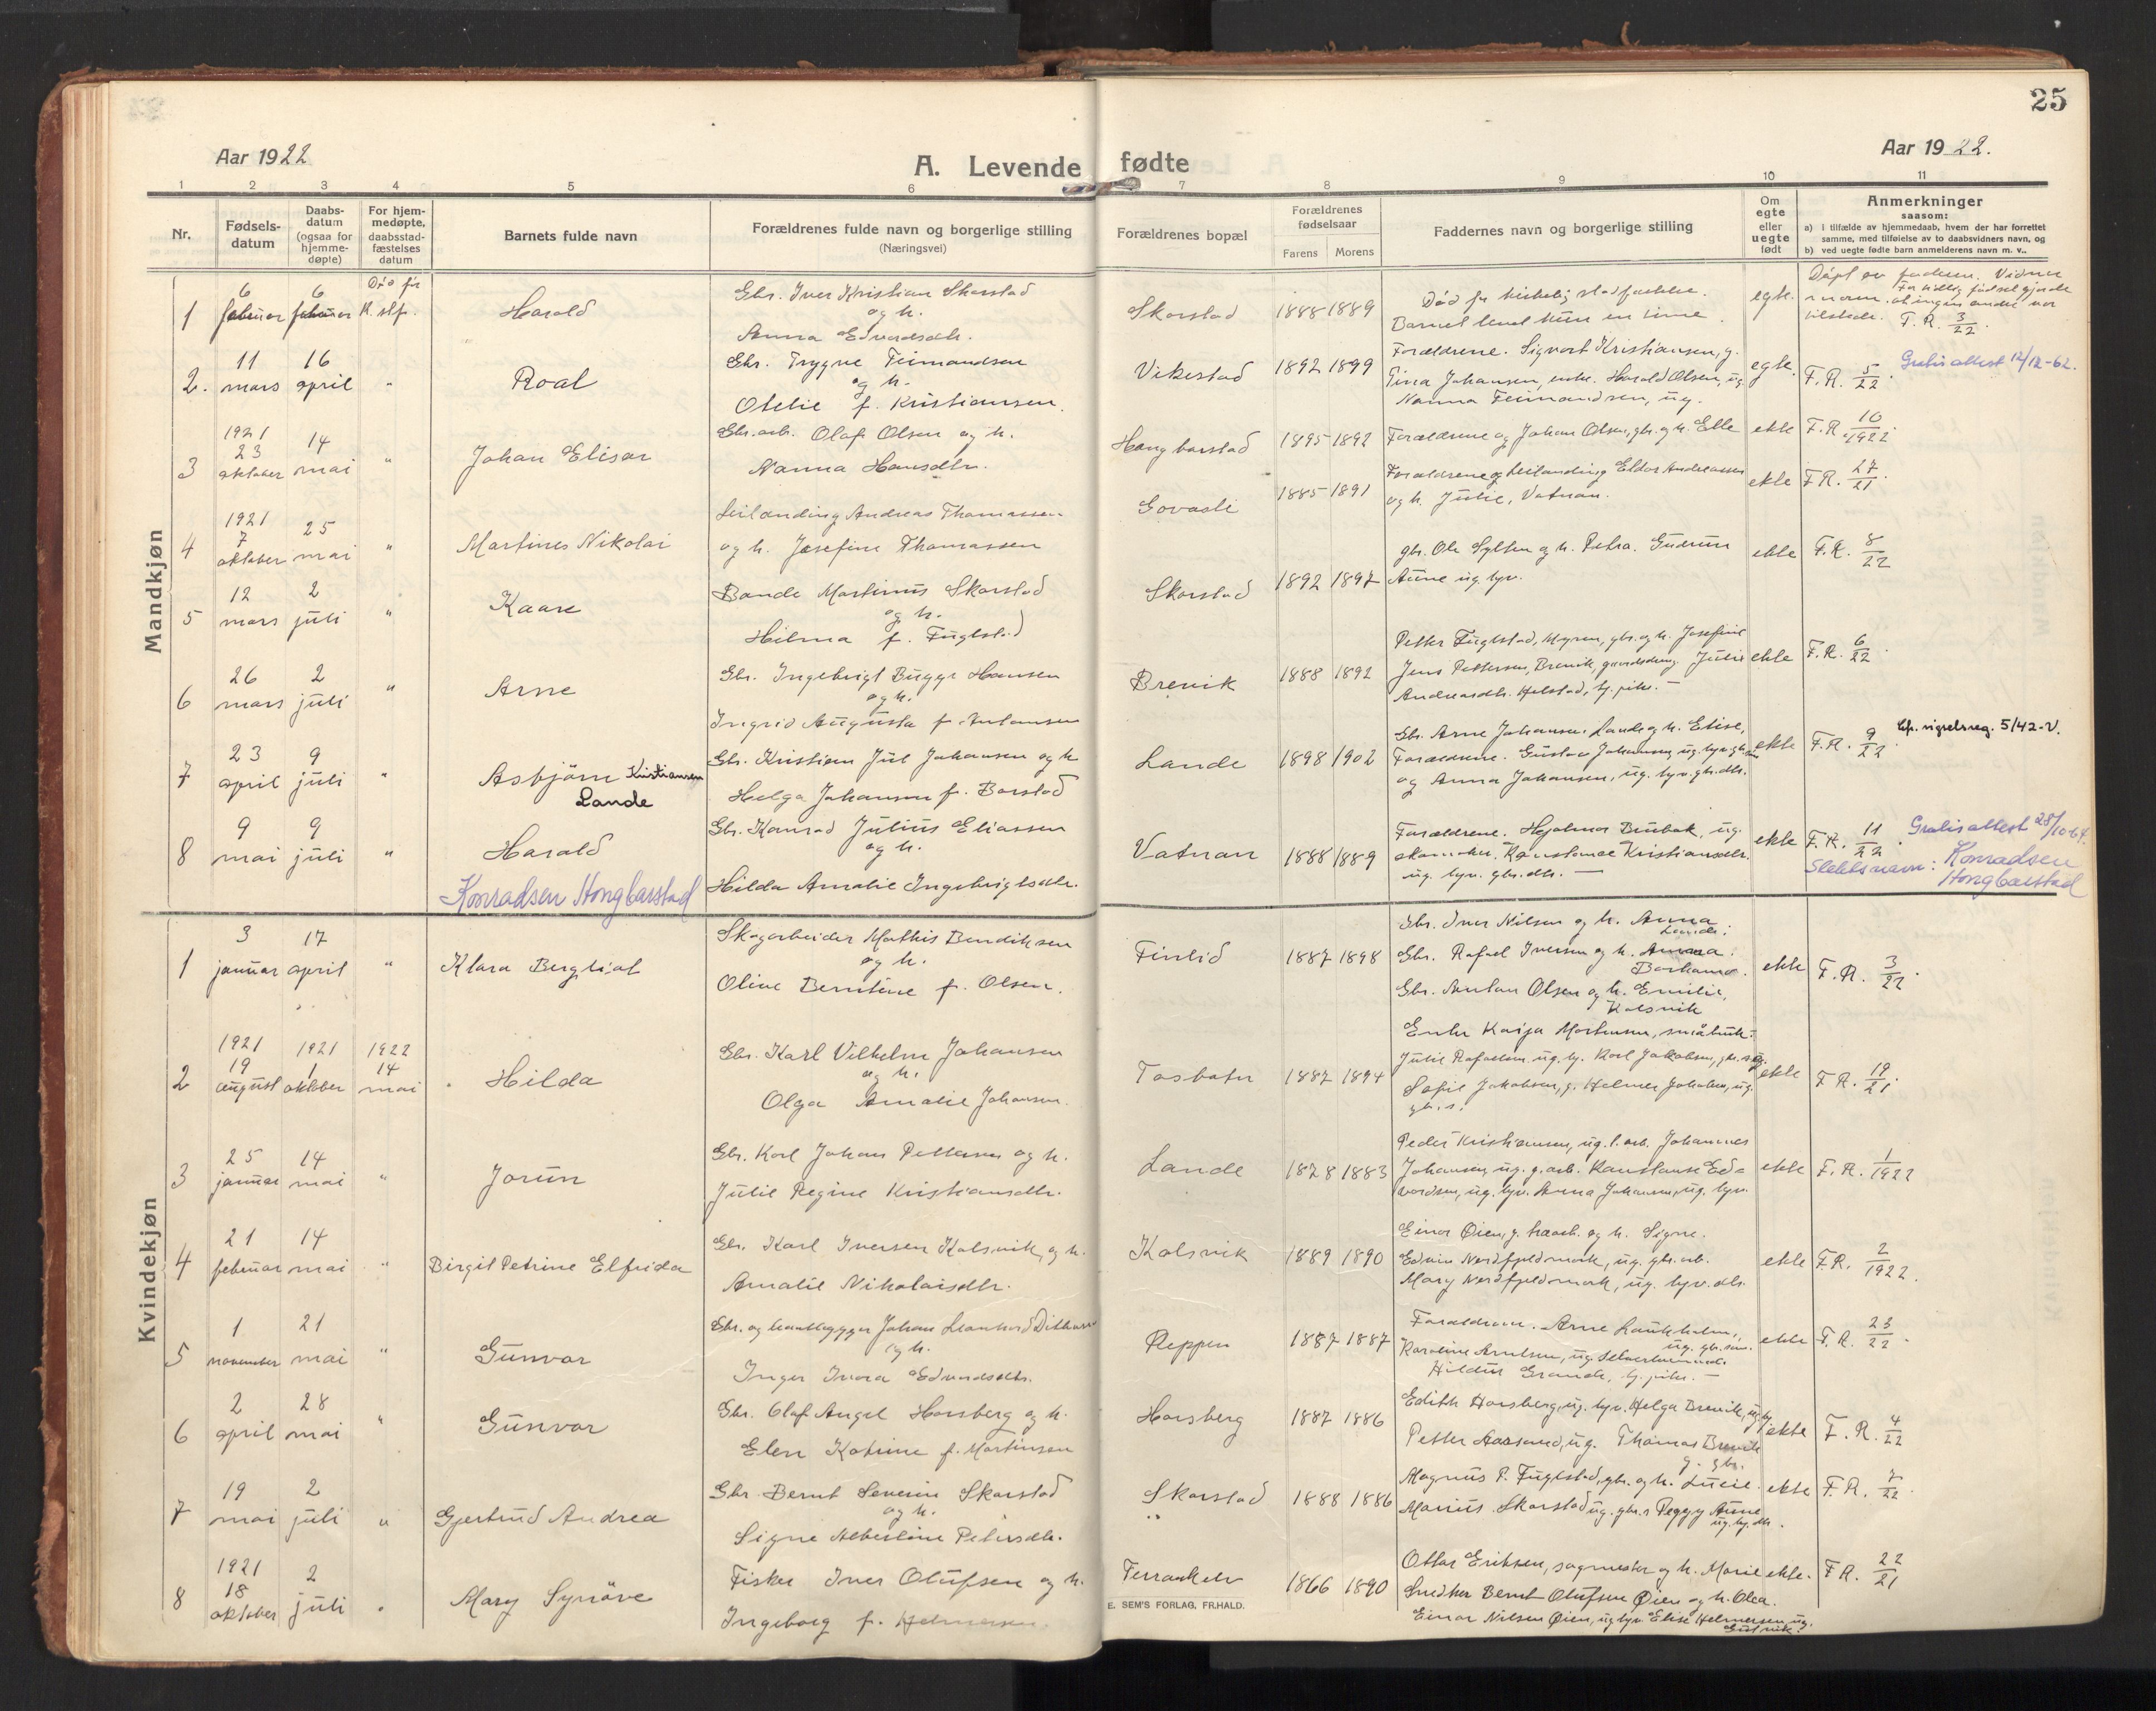 25
Aar 1922
Aar 1922.
A. Levende fødte
1 2 3 4 5 6 7 8 9 10 11
Nr.
Fødsels-
datum
Daabs-
datum
(ogsaa for
hjemme-
døpte)
For hjem-
medøpte,
daabsstad-
fæstelses
datum
Barnets fulde navn
Forældrenes fulde navn og borgerlige stilling
(Næringsvei)
Forældrenes bopæl
Forældrenes
fødselsaar
Farens Morens
Faddernes navn og borgerlige stilling
Om
egte
eller
uegte
født
Anmerkninger
saasom:
a) i tilfælde av hjemmedaab, hvem der har forrettet
samme, med tilføielse av to daabsvidners navn, og
b) ved uegte fødte barn anmelderens navn m. v..
Mandkjøn
1
6
februar
6
februar
Død før
K. stf.
Harald
Gbr. Iver Kristian Skarstad
og h.
Anna Edvardsdtr.
Skarstad
1888 1889
Død før kirkelig stadfæstelse.
Barnet levet kun en time.
egte.
Døpt av faderen. Vidner
F. R. 3/22.
2.
11
mars
16
april
"
Roal
Gbr. Trygve Feimandsen
og h.
Otelie f. Kristiansen.
Vikestad
1892 1899
Forældrene. Sigvart Kristiansen, g.
Tina Johansen, enke. Harald Olsen, ug.
Nanna Feimandsen, ug.
egte.
F. R. 5/22.
Gratis attest 12/12-62.
3
1921
23
oktober
14
mai
"
Johan Elisar
Gbr. arb. Olaf Olsen og h.
Nanna Hansdtr.
Hongbarstad
1895 1892
Forældrene og Johan Olsen, gbr. og h. Elle
ekte
F. R. 16/1922.
4
1921
7
oktober
25
mai
"
Martines Nikolai
Leilænding Andreas Thomassen
og h. Josefine Thomassen
Govasli
1885 1891
Forældrene og leilænding Eldor Andreassen
og h. Julie, Vatnan.
ekte
F. R. 27/21.
5
12
mars
2
juli
"
Kaare
Bonde Martinus Skarstad
og h.
Hilma f. Fuglstad
Skarstad
1892 1897
gbr. Ole Sylten og h. Petra. Gudrun
Aune ug. tyv.
ekte
F. R. 8/22
6
26
mars
2
juli
"
Arne
Gbr. Ingebrigt Bugge Hansen
og h.
Ingrid Augusta f. Antonsen
Brevik
1888 1892
Petter Fuglstad, Myren, gbr. og h. Josefine
Jens Pettersen, Brevik, gaardsdreng. Julie
Andreasdtr. Helstad, tj. pike. —
ekte
F. R. 6/22.
7
23
april
9
juli
"
Asbjørn Kristiansen
Lande
Gbr. Kristian Jul Johansen og h
Helga Johansen f. Barstad
Lande
1898 1902
Gbr. Arne Johansen, Lande og h. Elise,
Forældrene. Gustav Johansen, ug.
og Anna Johansen, ug. tyv. gb. dtr.
ekte
F. R. 9/22.
Cfr. vigselsreg. 5/42-V.
8
9
mai
9
juli
"
Harald
Konradsen Hongbarstad
Gbr. Konrad Julius Eliassen
og h.
Hilda Amalie Ingebrigtsdtr.
Vatnan
1888 1889
Forældrene. Hjalmar Brubak, ug.
skomaker. Konstanse Kristiansdtr.
ug. tyv. gbr. dtr. —
ekte
F. R. 11/22.
Gratis attest 28/10-64.
Slektsnavn: Konradsen
Hongbarstad
Kvindekjøn
1
3
januar
17
april
"
Klara Bergliot
Skogarbeider Mathis Bendiksen
og h.
Oline Berntine f. Olsen.
Finlid
1887 1898
Gbr. Iver Nilsen og h. Anna
Lande;
Gbr. Rafael Iversen og h. Anna.
Gbr. Anton Olsen og h. Emilie,
Kolsvik
ekte
F. R. 3/22.
2
1921
19
august
1921
1
oktober
1922
14
mai
Hilda
Gbr. Karl Vilhelm Johansen
og h.
Olga Amalie Johansen.
Tosbotn
1887 1894
Enke Kaija Mortensen, småbruk.
Julie Rafaelsen ug. tj. Karl Jakobsen, gbr. s. ug.
Sofie Jakobsen, g. Helmer Jakobsen, ug.
gb. s.
ekte
F. R. 19/21.
3
25
januar
14
mai
"
Jorun
Gbr. Karl Johan Pettersen og h.
Julie Regine Kristiansdtr.
Lande
1878 1883
Peder Kristiansen, ug. l. arb. Johannes
Johansen ug. g. arb. Konstanse Ed-
vardsen, ug. tyv. Anna Johansen, ug. tyv.
ekte
F. R. 1/1922
4
21
februar
14
mai
"
Birgit Petrine Elfrida
Gbr. Karl Iversen Kolsvik, og h.
Amalie Nikolaisdtr.
Kolsvik
1889 1890
Einar Øien, g. og h. Signe.
Edvin Nordfjeldmark, ug. gbr. arb.
Mary Nordfjeldmark, ug. tyv. dtr.
ekte
F. R. 2/1922.
5
1
november
21
mai
"
Gunvor
Gbr. og baatbygger Johan Leonhard
og h.
Inger Ivara Edvardsdtr.
Reppen
1887 1887
Forældrene. Arne Laukholm,
ug. gb. søn.
Karoline Arntsen, ug.
Hildur Grande, tj. pike. —
ekte
F. R. 23/22.
6
2
april
28
mai
"
Gunvor
Gbr. Olaf Angel Horsberg og h.
Elen Katrine f. Martinsen
Horsberg
1887 1886
Edith Horsberg, ug. tyv. Helga Brevik, ug. tj.
Petter Aarsand, ug. Thomas Brevik
g. gbr.
ekte
F. R. 4/22
7
19
mai
2
juli
"
Gjertrud Andrea
Gbr. Bernt Severin Skarstad
og h.
Signe Albertine Petersdtr.
Skarstad
1888 1886
Magnus P. Fuglstad, gbr. og h. Lucie.
Marius Skarstad ug. gbr. s Peggy Aune
ug. tj. dtr.
ekte
F. R. 7/22.
8
1921
18
oktober
2
juli
"
Mary Synøve
Fisker Iver Olufsen og h.
Ingeborg f. Helmersen.
Terraakelv
1866 1890
Ottar Eriksen, sagmester og h. Marie
Snedker Bernt Olufsen Øien og h. Olea.
Einar Nilsen Øien, ug tyv. Elise Helmersen ug.
ekte.
F. R. 22/21
E. SEM'S FORLAG, FR.HALD.